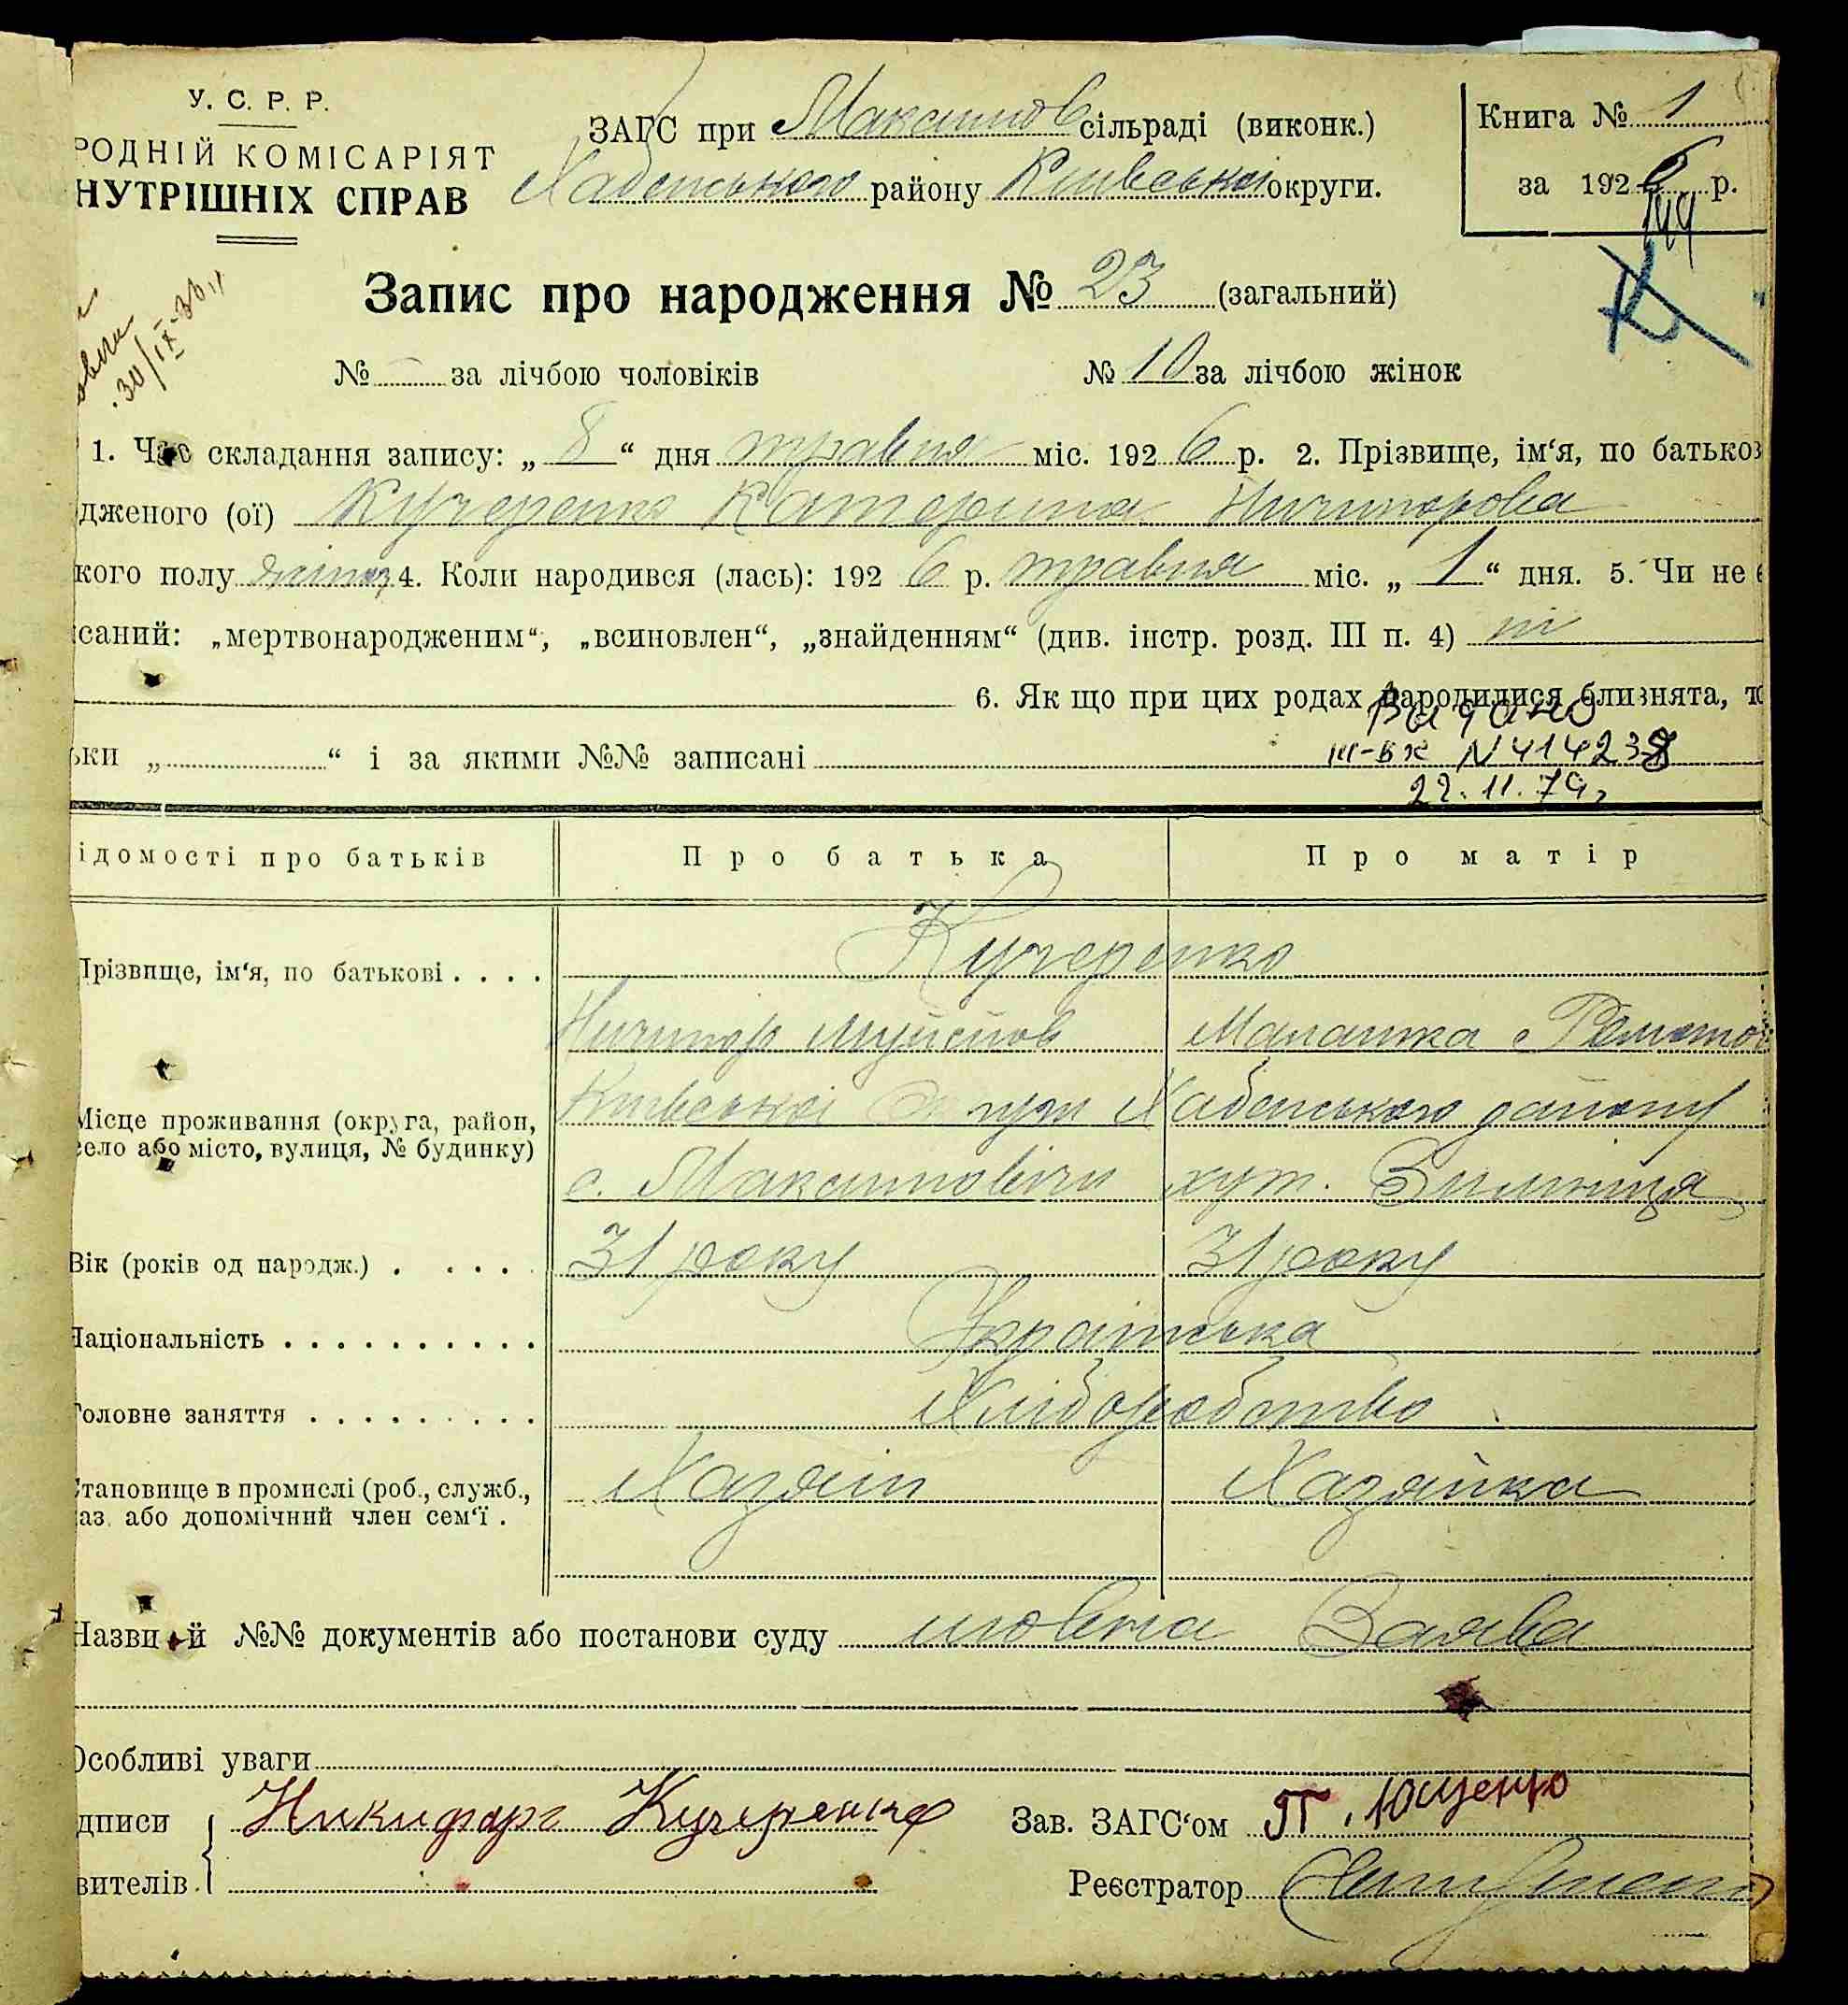 У. С. Р. Р.
РОДНІЙ КОМІСАРІЯТ
НУТРІШНІХ СПРАВ
ЗАГС при Максимов сільраді (виконк.)
Хабенського району Київської округи.
Книга № 1
за 1926 р.
199
30/IX-36
Запис про народження № 23 (загальний)
№ за лічбою чоловіків № 10 за лічбою жінок
1. Час складання запису: „ 8 “ дня травня міс. 1926 р. 2. Прізвище, ім‘я, по батьков
дженого (ої) Кучеренко Катерина Ничипорова
кого полу жіноч 4. Коли народився (лась): 1926 р. травня міс. „ 1 “ дня. 5. Чи не є
саний: „мертвонародженим“, „всиновлен“, „знайденням“ (див. інстр. розд. III п. 4) ні
6. Як що при цих родах народилися близнята, то
ьки „ “ і за якими №№ записані
Видано
III-БК N 414238
22.11.79,
ідомості про батьків Про батька Про матір
Прізвище, ім‘я, по батькові . . . . Кучеренко
Ничипор Мусійов Маланка
Місце проживання (округа, район, село або місто, вулиця, № будинку) Київської Округи Хабенського району
с. Максимовичи хут.
Вік (років од народж.) . . . . . 31 року 31 року
Національність . . . . . . . . . . Українська
Головне заняття . . . . . . . . . Хліборобство
Становище в промислі (роб., служб., Хазяїн Хазяйка
аз. або допомічний член сем‘ї .
Назви й №№ документів або постанови суду мовна Заява
Особливі уваги
дписи Никифоръ Кучеренко Зав. ЗАГС‘ом П. Ющенко
вителів. Реєстратор